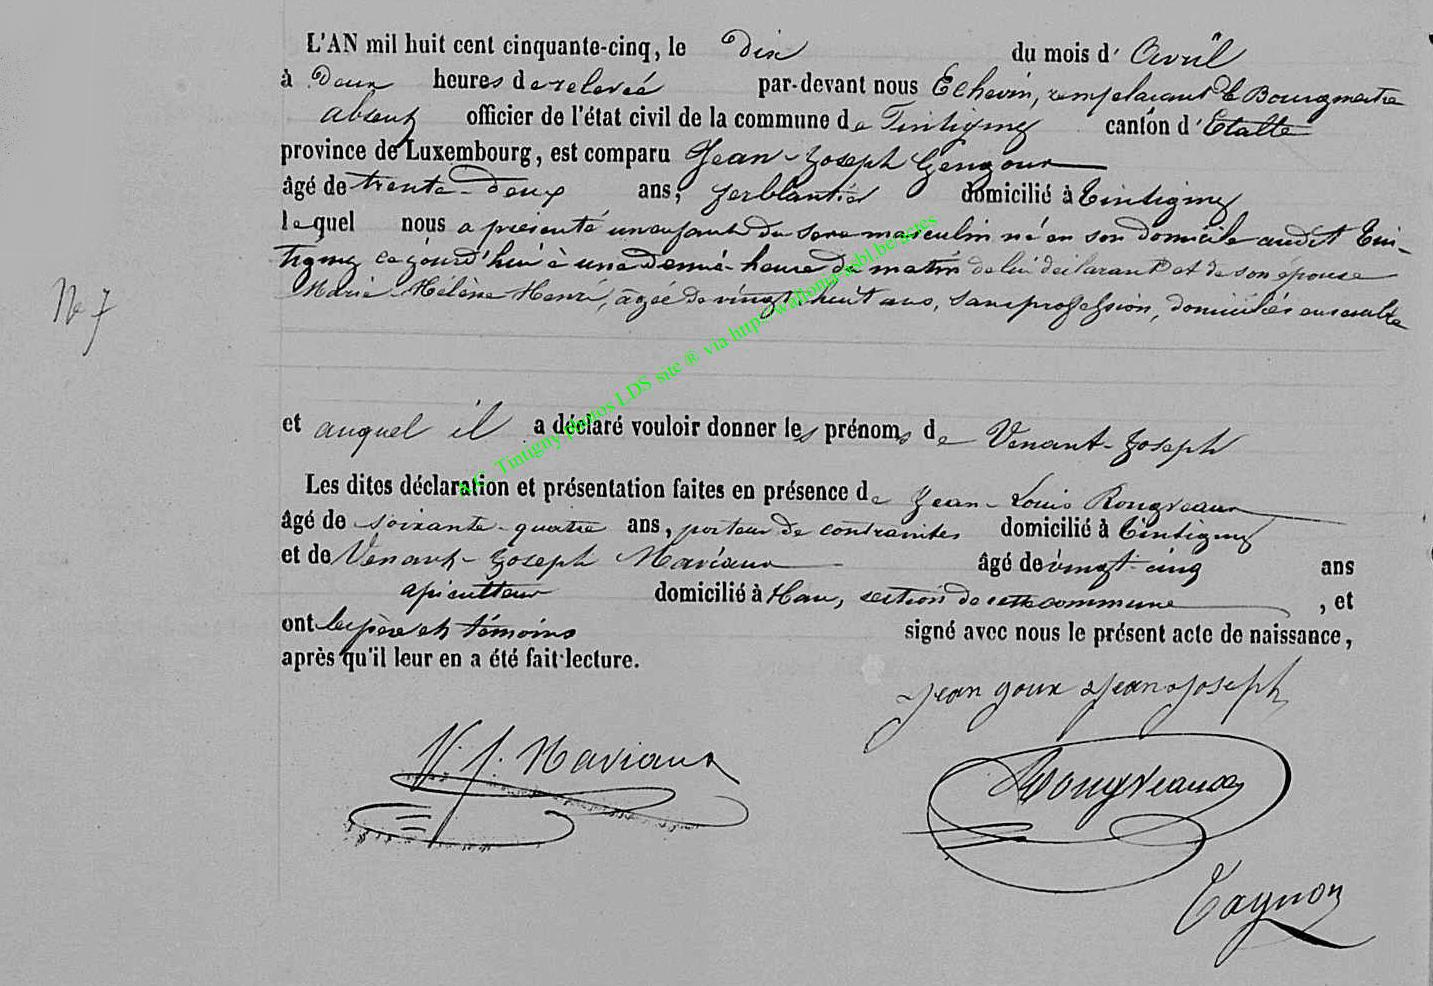 L'AN mil huit cent cinquante-cinq, le Dix du mois d' Avril
à Deux heures de relevée par-devant nous Echevin, remplaçant le Bourgmestre
absent officier de l'état civil de la commune de Tintigny canton d'Etalle
province de Luxembourg, est comparu Jean-Joseph Gengoux
âgé de trente-deux ans, ferblantier domicilié à Tintigny
lequel nous a présenté un enfant du sexe masculin né en son domicile audit Tin-
tigny ce jourd'hui à une demie-heure du matin de lui déclarant et de son épouse
Marie-Hélène Henri, âgée de vingt-huit ans, sans profession, domiciliés ensemble
No 7
et auquel il a déclaré vouloir donner les prénoms de Venant-Joseph
Les dites déclaration et présentation faites en présence de Jean-Louis Rougveaux
âgé de soixante-quatre ans, porteur de contraintes domicilié à Tintigny
et de Venant-Joseph Maviaux âgé de vingt-cinq ans
apiculteur domicilié à Han, section de cette commune, et
ont les père et témoins signé avec nous le présent acte de naissance,
après qu'il leur en a été fait lecture.
Jean goux Jean Joseph
V. J. Maviaux
Rougveaux
Tagnon
A.C. Tintigny photos LDS site ® via http://wallonia-asbl.be/actes